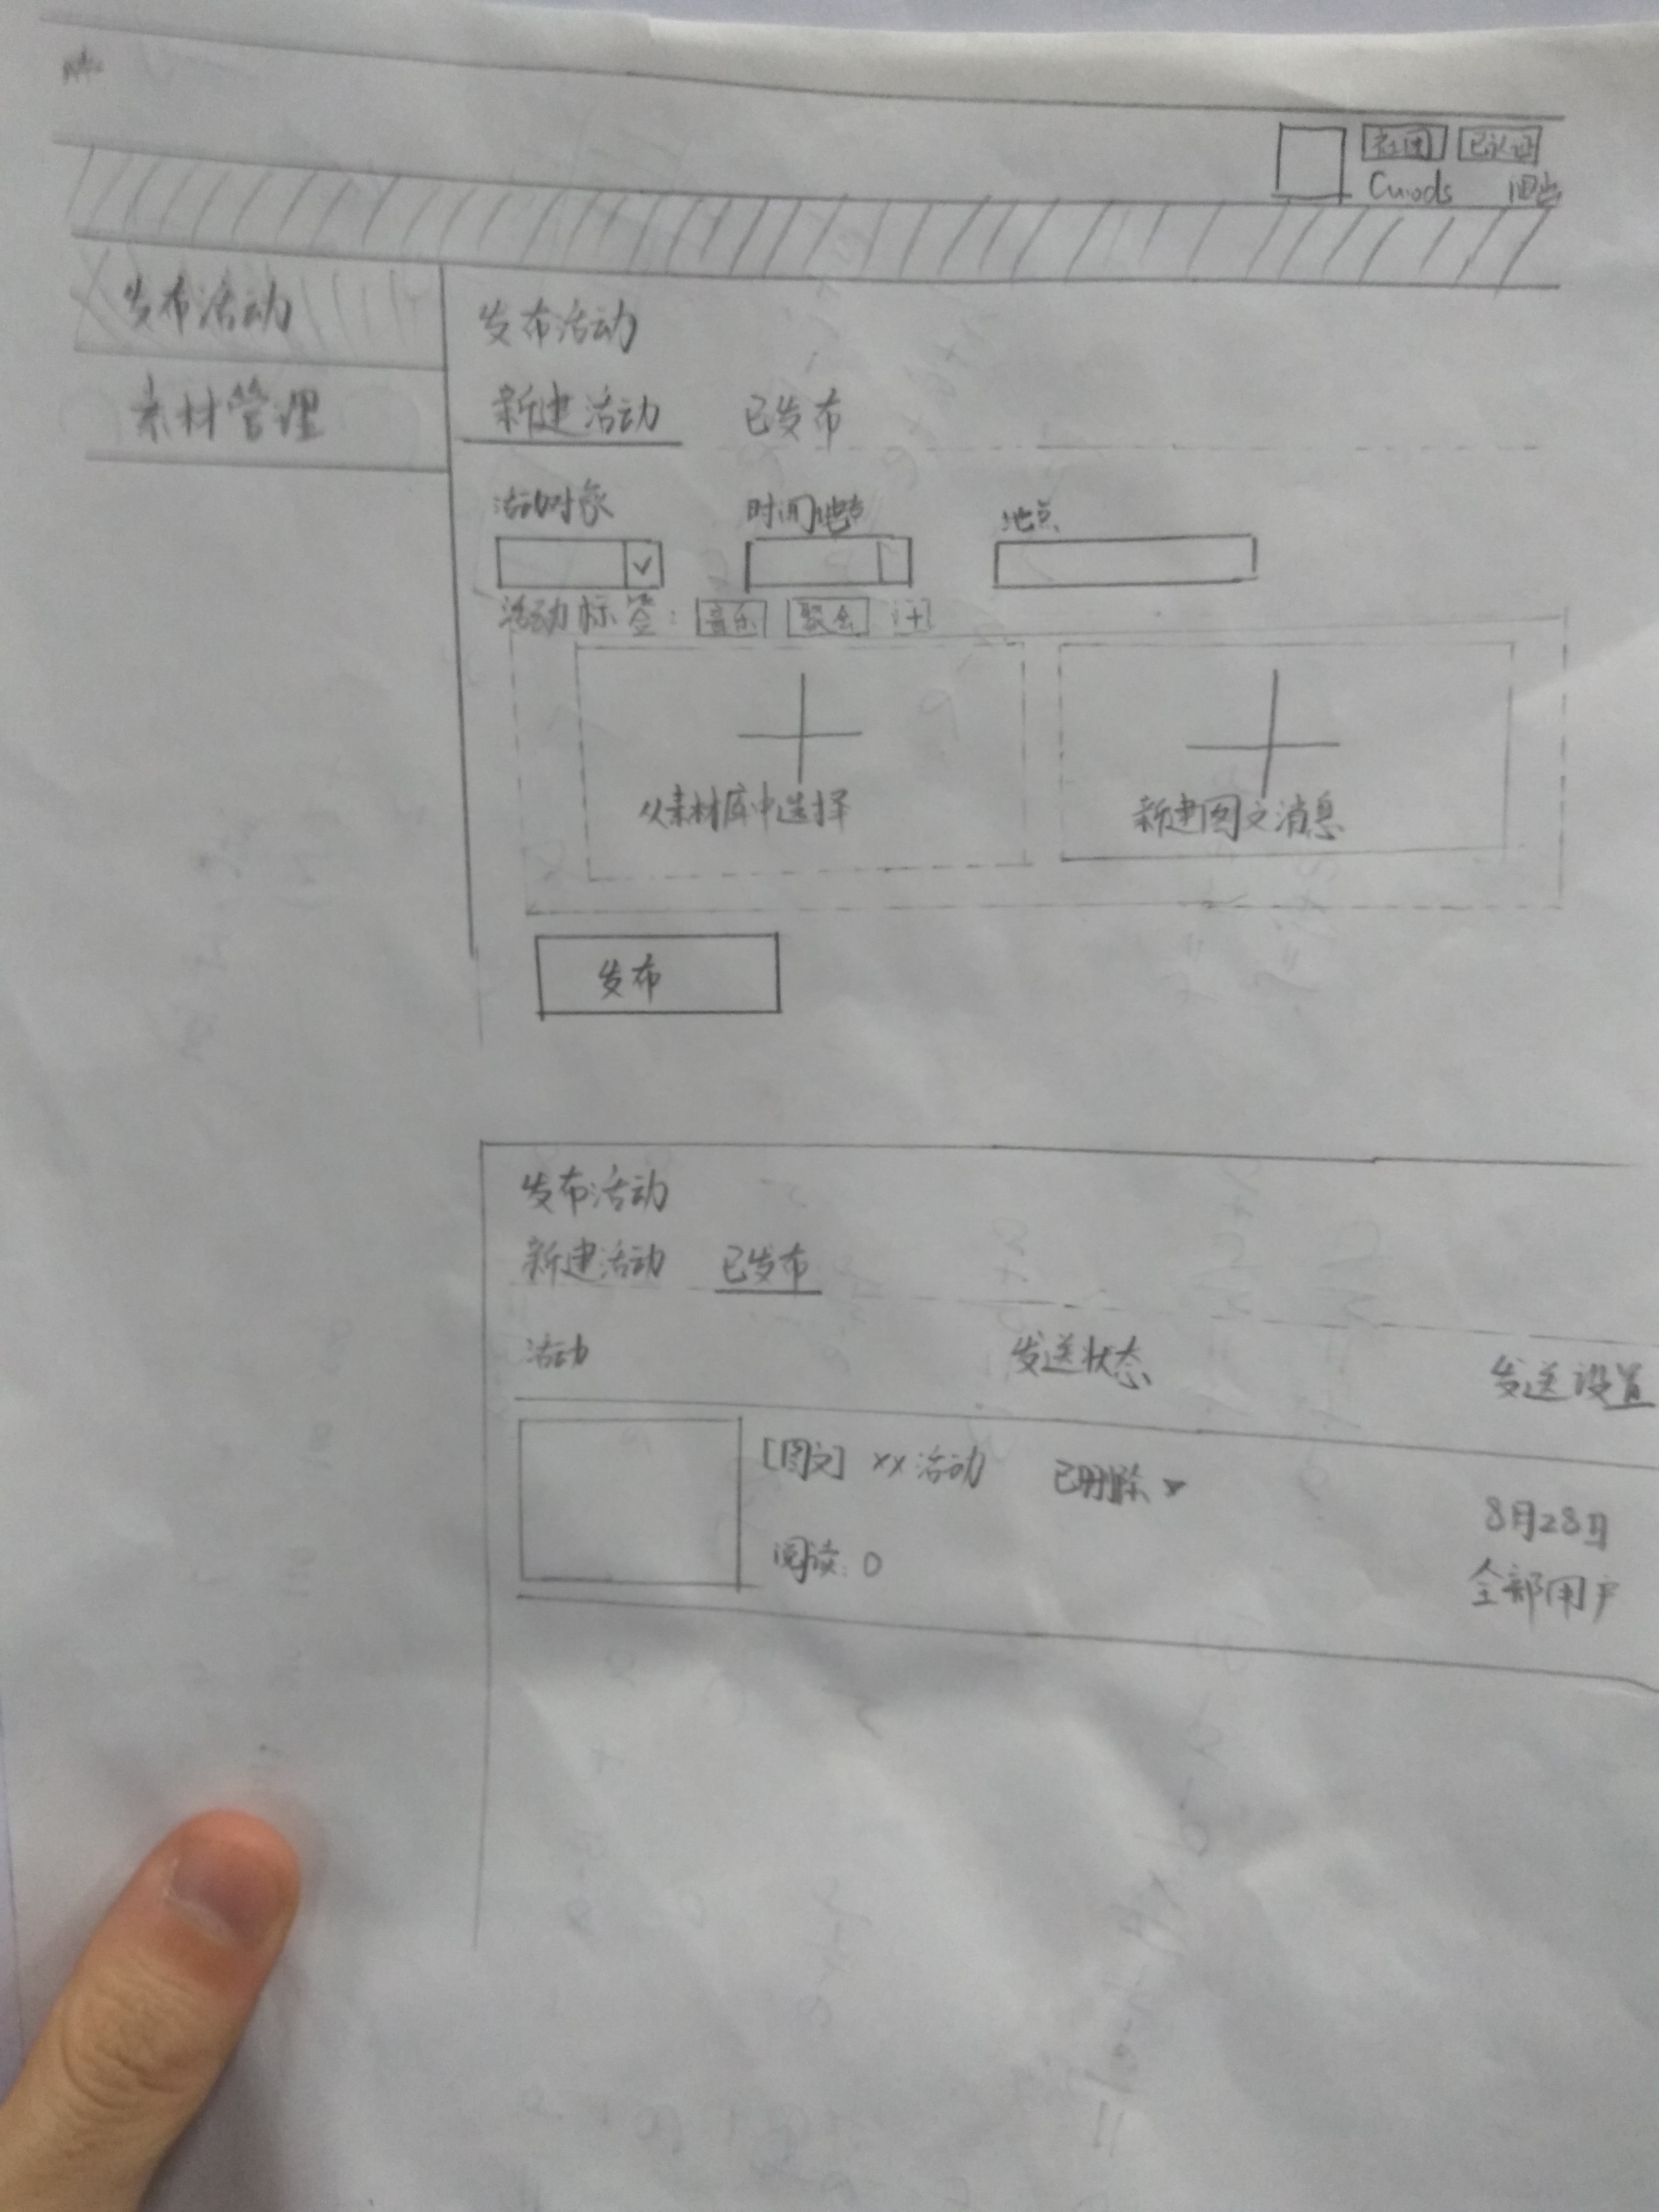 社团 已认证
Cuiods 退出
发布活动
素材管理
发布活动
新建活动 已发布
活动对象 时间地点 地点
活动标签: 音乐 聚会 +
从素材库中选择 新建图文消息
发布
发布活动
新建活动 已发布
活动 发送状态 发送设置
[图文] xx活动 已删除
8月28日
阅读: 0
全部用户